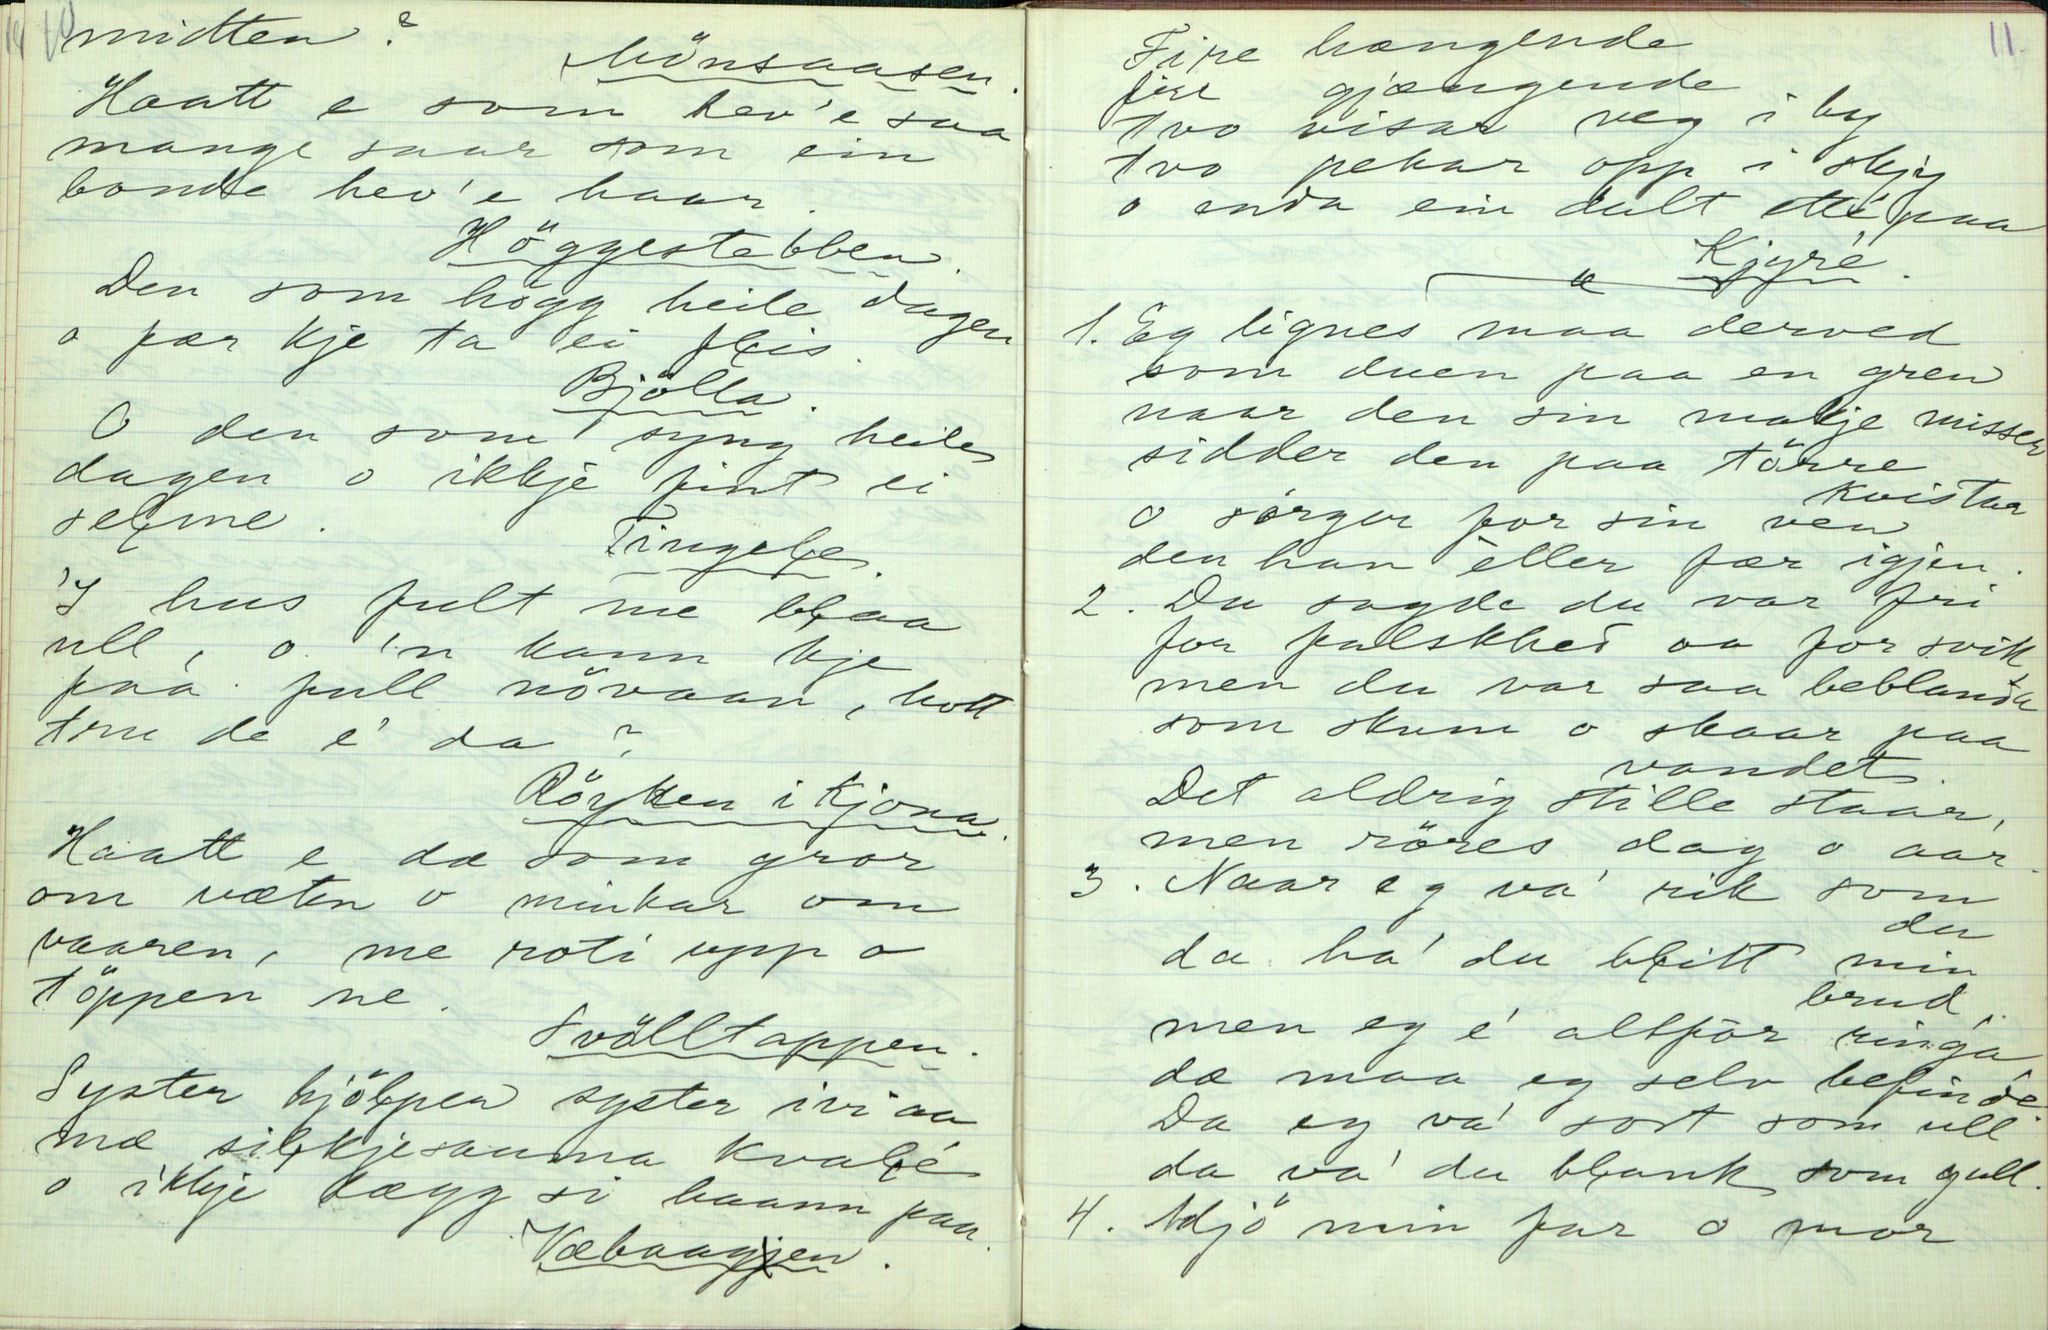 10
midten?
Mönsaasen.
Haatt e som hev'e saa
mange saar som ein
bonde hev'e haar.
Höggestabben.
Den som högg heile dagen
o fær kje ta ei flis.
Bjölla.
O den som syng heile
dagen o ikkje fint ei
selme.
Tingele.
I hus fult me blaa
ull, o 'n kann kje
faa full növaan, hott
tru de e' da?
Röyken i Kjona.
Haatt e dæ som gror
om vætn o minkar om
vaaren, me roti upp o
töppen ne.
Svölltappen.
Syster hjölper syster ivi aa
mæ silkjesauma kvalé
o ikkje lægg si haann paa.
Væbaagen.
11
Fire hængende
fire gjængende
tvo visar veg i by
tvo pekar opp i skjy
o enda ein dalt etté paa
Kjyré.
1. Eg lignes maa derved
som duen paa en gren
naar den sin makje misser
sidder den paa törre
kvistar
o sörger for sin ven
den han eller fær igjen.
2. Du sagde du var fri
for falskhed oa for svik
men du var saa beblanda
som skum o skaar paa
vandet.
Det aldrig stille staar,
men röres dag o aar.
3. Naar eg va' rik som
du
da ha' du blitt min
brud.
men eg é altför ringa
dæ maa eg selv befinde.
Da eg va' sort som ull
da va' du blank som gull.
4. Adjö min far o mor